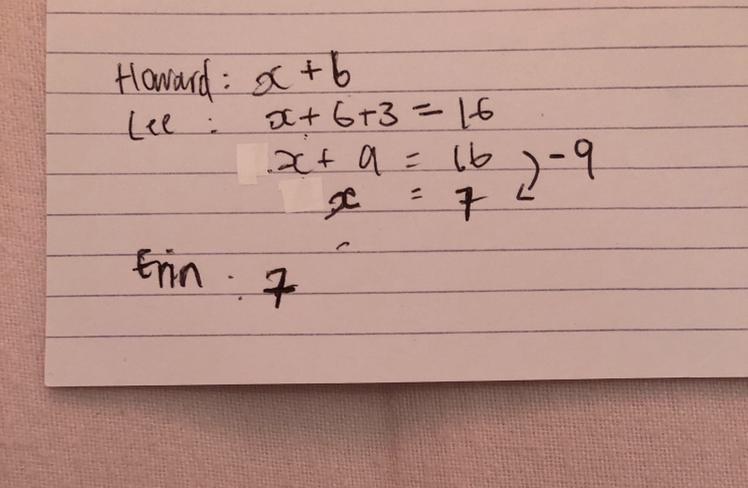 Howard: x + 6
Lee : x + 6 + 3 = 16
x + 9 = 16 -9
x = 7
Erin : 7